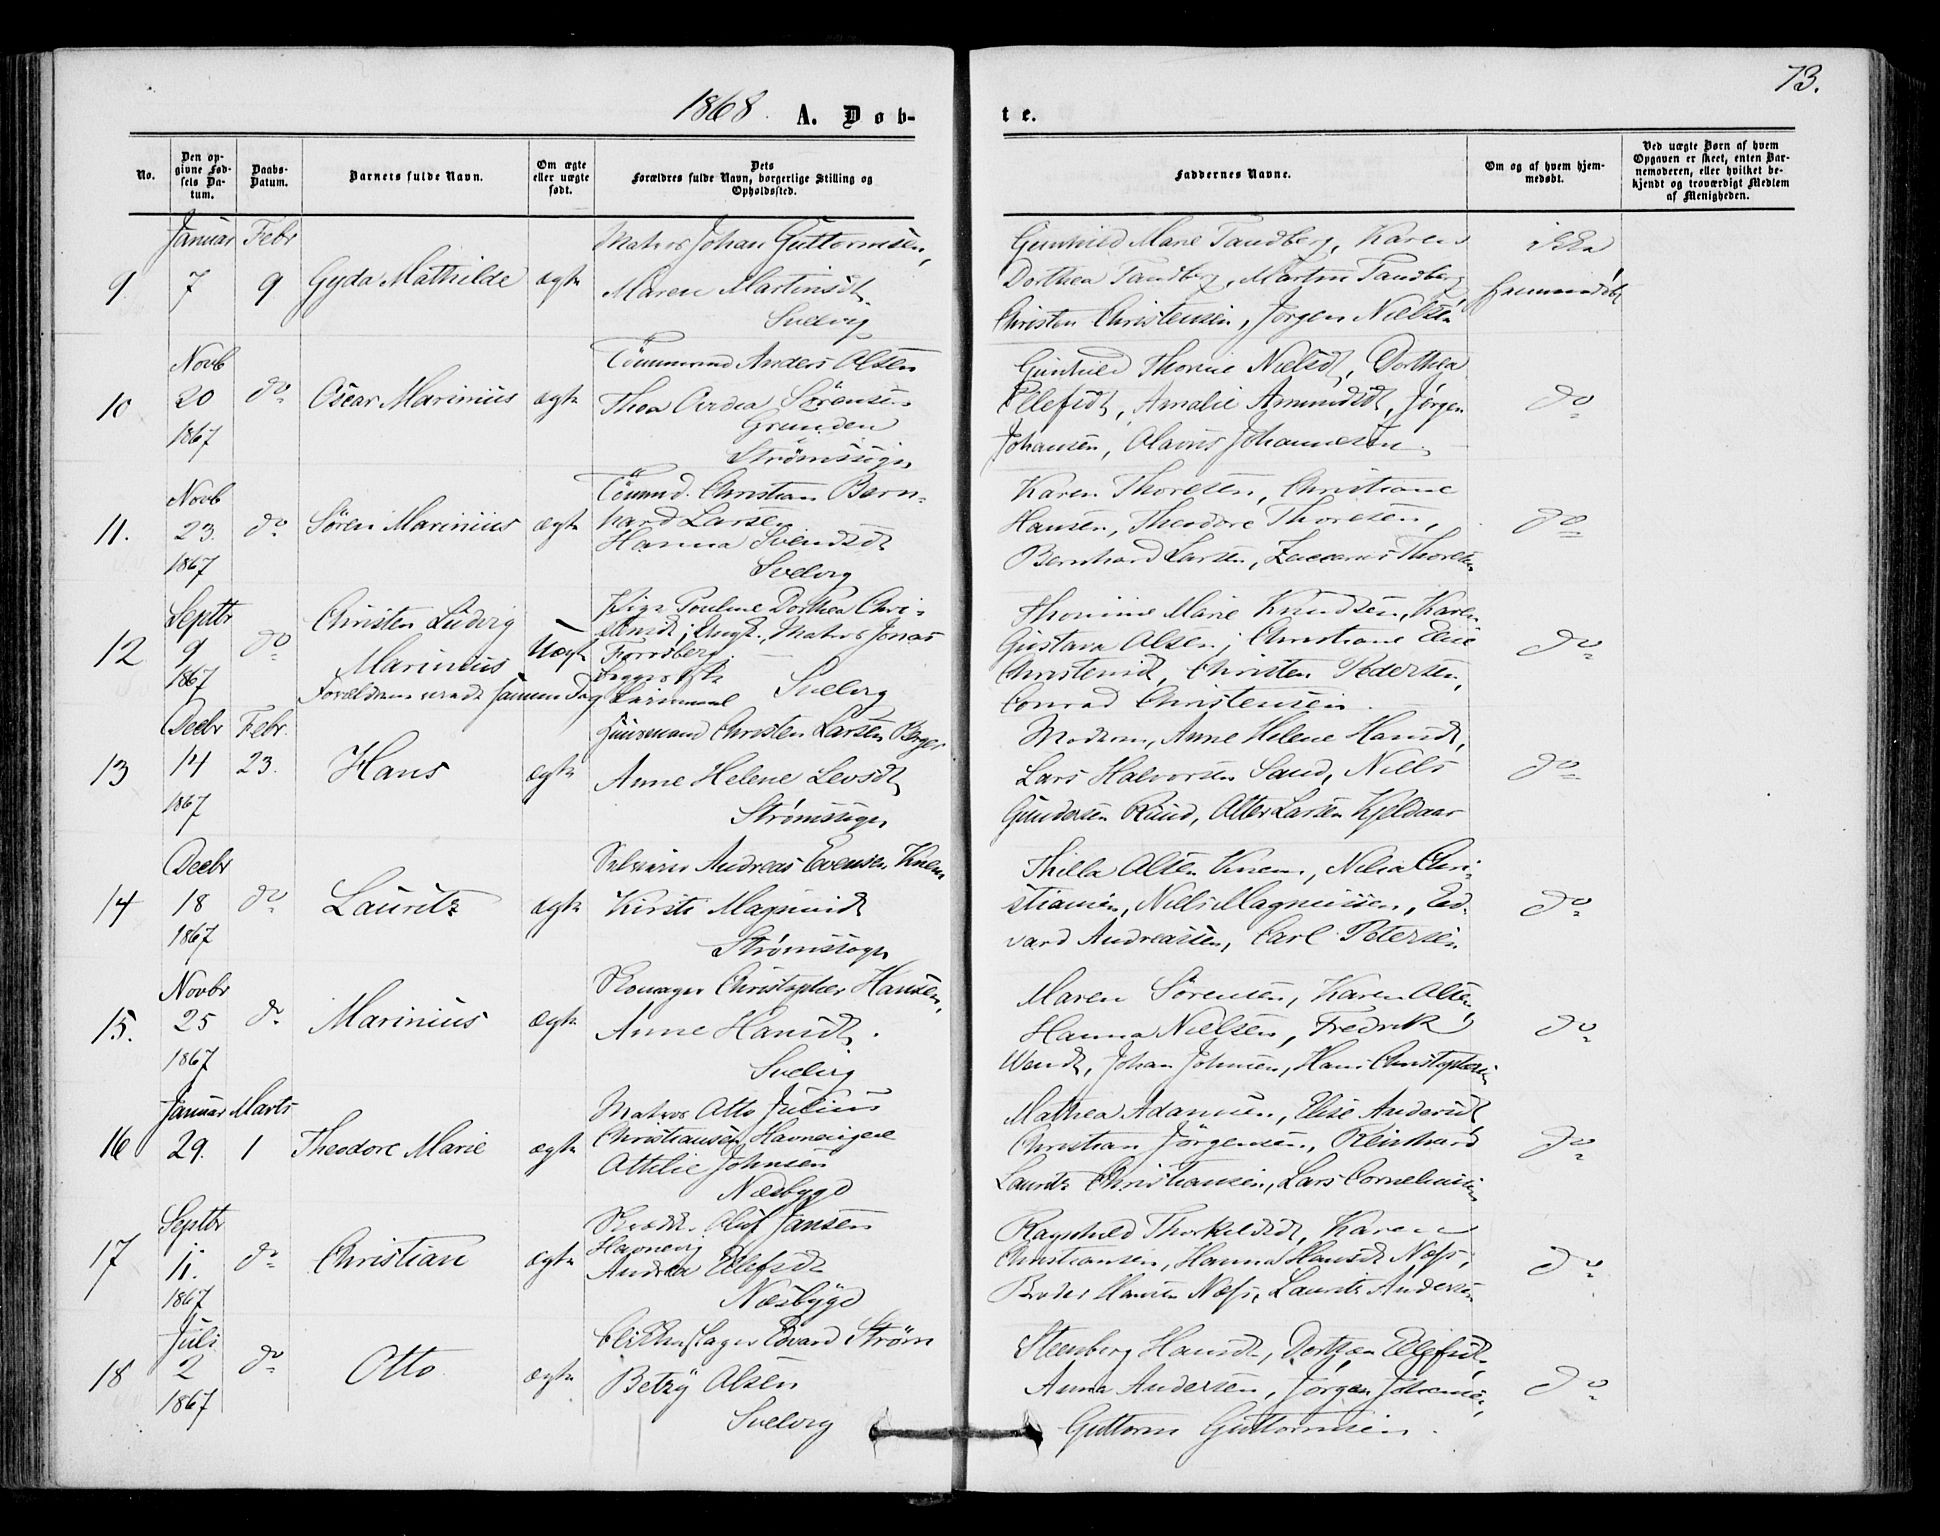 1868. A. Døb-
te.
73.
No.
Den op-
givne Fød-
sels Da-
tum.
Daabs-
Datum.
Barnets fulde Navn.
Om ægte
eller uægte
født.
Dets
Forældres fulde Navn, borgerlige Stilling og
Opholdssted.
Faddernes Navne.
Om og af hvem hjem-
medøbt.
Ved uægte Børn af hvem
Opgaven er skeet, enten Bar-
nemoderen, eller hvilket be-
kjendt og troværdigt Medlem
af Menigheden.
Januar Febr
9 7 9 Gyda Mathilde ægte
Matros Johan Guttormsen,
Maren Martinsdt.
Svelvig
Gunhild Marie Tandberg, Karen
Dorthea Tandberg, Martin Tandberg
Christen Christensen, Jørgen Nielsen
ikke
hjemmedøbt
Novb
10 20 do Oscar Marinius ægte
1867
Tømmermd Anders Olsen
Thea Sørensen
Grunden
Gunhild Thorine Nielsdt, Dorthea
Ellefsdt, Amalie Amundsdt, Jørgen
Johansen, Olavus Johannesen
do
Novb
11. 23. do Søren Marinius ægte
1867
Tømmd. Christian Bern-
hard Larsen
Hanna Svendsdt
Svelvig
Karen Thoresen, Christiane
Hansen, Theodore Thoresen,
Bernhard Larsen, Zaccarias Thoresen
do
Septbr
12 9 do Christen Ludvig
Marinius Uægte
1867
Pige Pouline Dorthea Chri-
stensdt; Ungk. Matros Jonas
Forsberg
Svelvig
Thomine Marie Knudsen, Karen
Gustava Olsen, Christiane Elise
Christensd, Christen Pedersen,
Conrad Christensen.
do
Decbr Febr.
13 14 23. Hans ægte
1867
Huusmand Christen Larsen Berger
Anne Helene Levsdt
Moderen, Anne Helene Hansdt,
Lars Halvorsen Sand, Niels
Gundersen Ruud, Larsen Kjeldaas
do
Decbr
14 18 do Lauritz ægte
1867
Selveier Andreas Evensen Knem
Kirsti Magnusdt
Strømssogn
Thilla Olsen Knem, Chri-
stiansen, Niels Magnussen, Ed-
vard Andreassen, Carl Petersen
do
Novbr
15. 25 do Marinius ægte
1867
Skomager Christopher Hansen,
Anne Hansdt.
Svelvig
Maren Sørensen, Karen Olsen,
Hanna Nielsen, Fredrik
Wendt, Johan Johnsen, Hans Christophersen
do
Januar Marts
16 29. 1 Theodore Marie ægte
Matros Otto Julius
Christiansen,
Attilie Johnsen
Næsbygd
Mathea Adamsen, Elise Andersdt
Christian Jørgensen, Reinhard
Lauritz Christiansen, Lars Corneliusen
do
Septbr
17 11. do Christian ægte
1867
Skrædd. Oluf Jansen
Havnevig
Andrea Ellefsdt
Næsbygd
Ragnhild Thorkildsdt, Karen
Christiansen, Hanna Hansdt Næss,
Broder Hansen Næss, Lauritz Andersen
do
Juli
18 2 do Otto ægte
1867
Blikkenslager Edvard Strøm
Betzy Olsen
Svelvig
Hansdt, Ellefsdt,
Anna Andersen, Jørgen Johansen,
Guttorm Guttormsen.
do